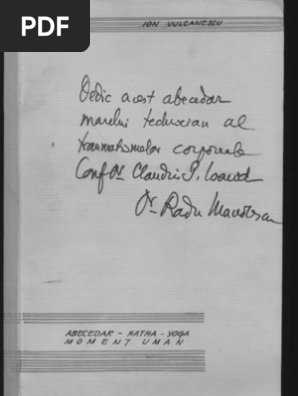 PDF
ION VULCANESCU
Dedic acest abecedar
marelui tehnician al
traumatismelor corporale
Conf Dr Claudiu P.
Dr Radu
ABECEDAR - HATHA - YOGA
MOMENT UMAN